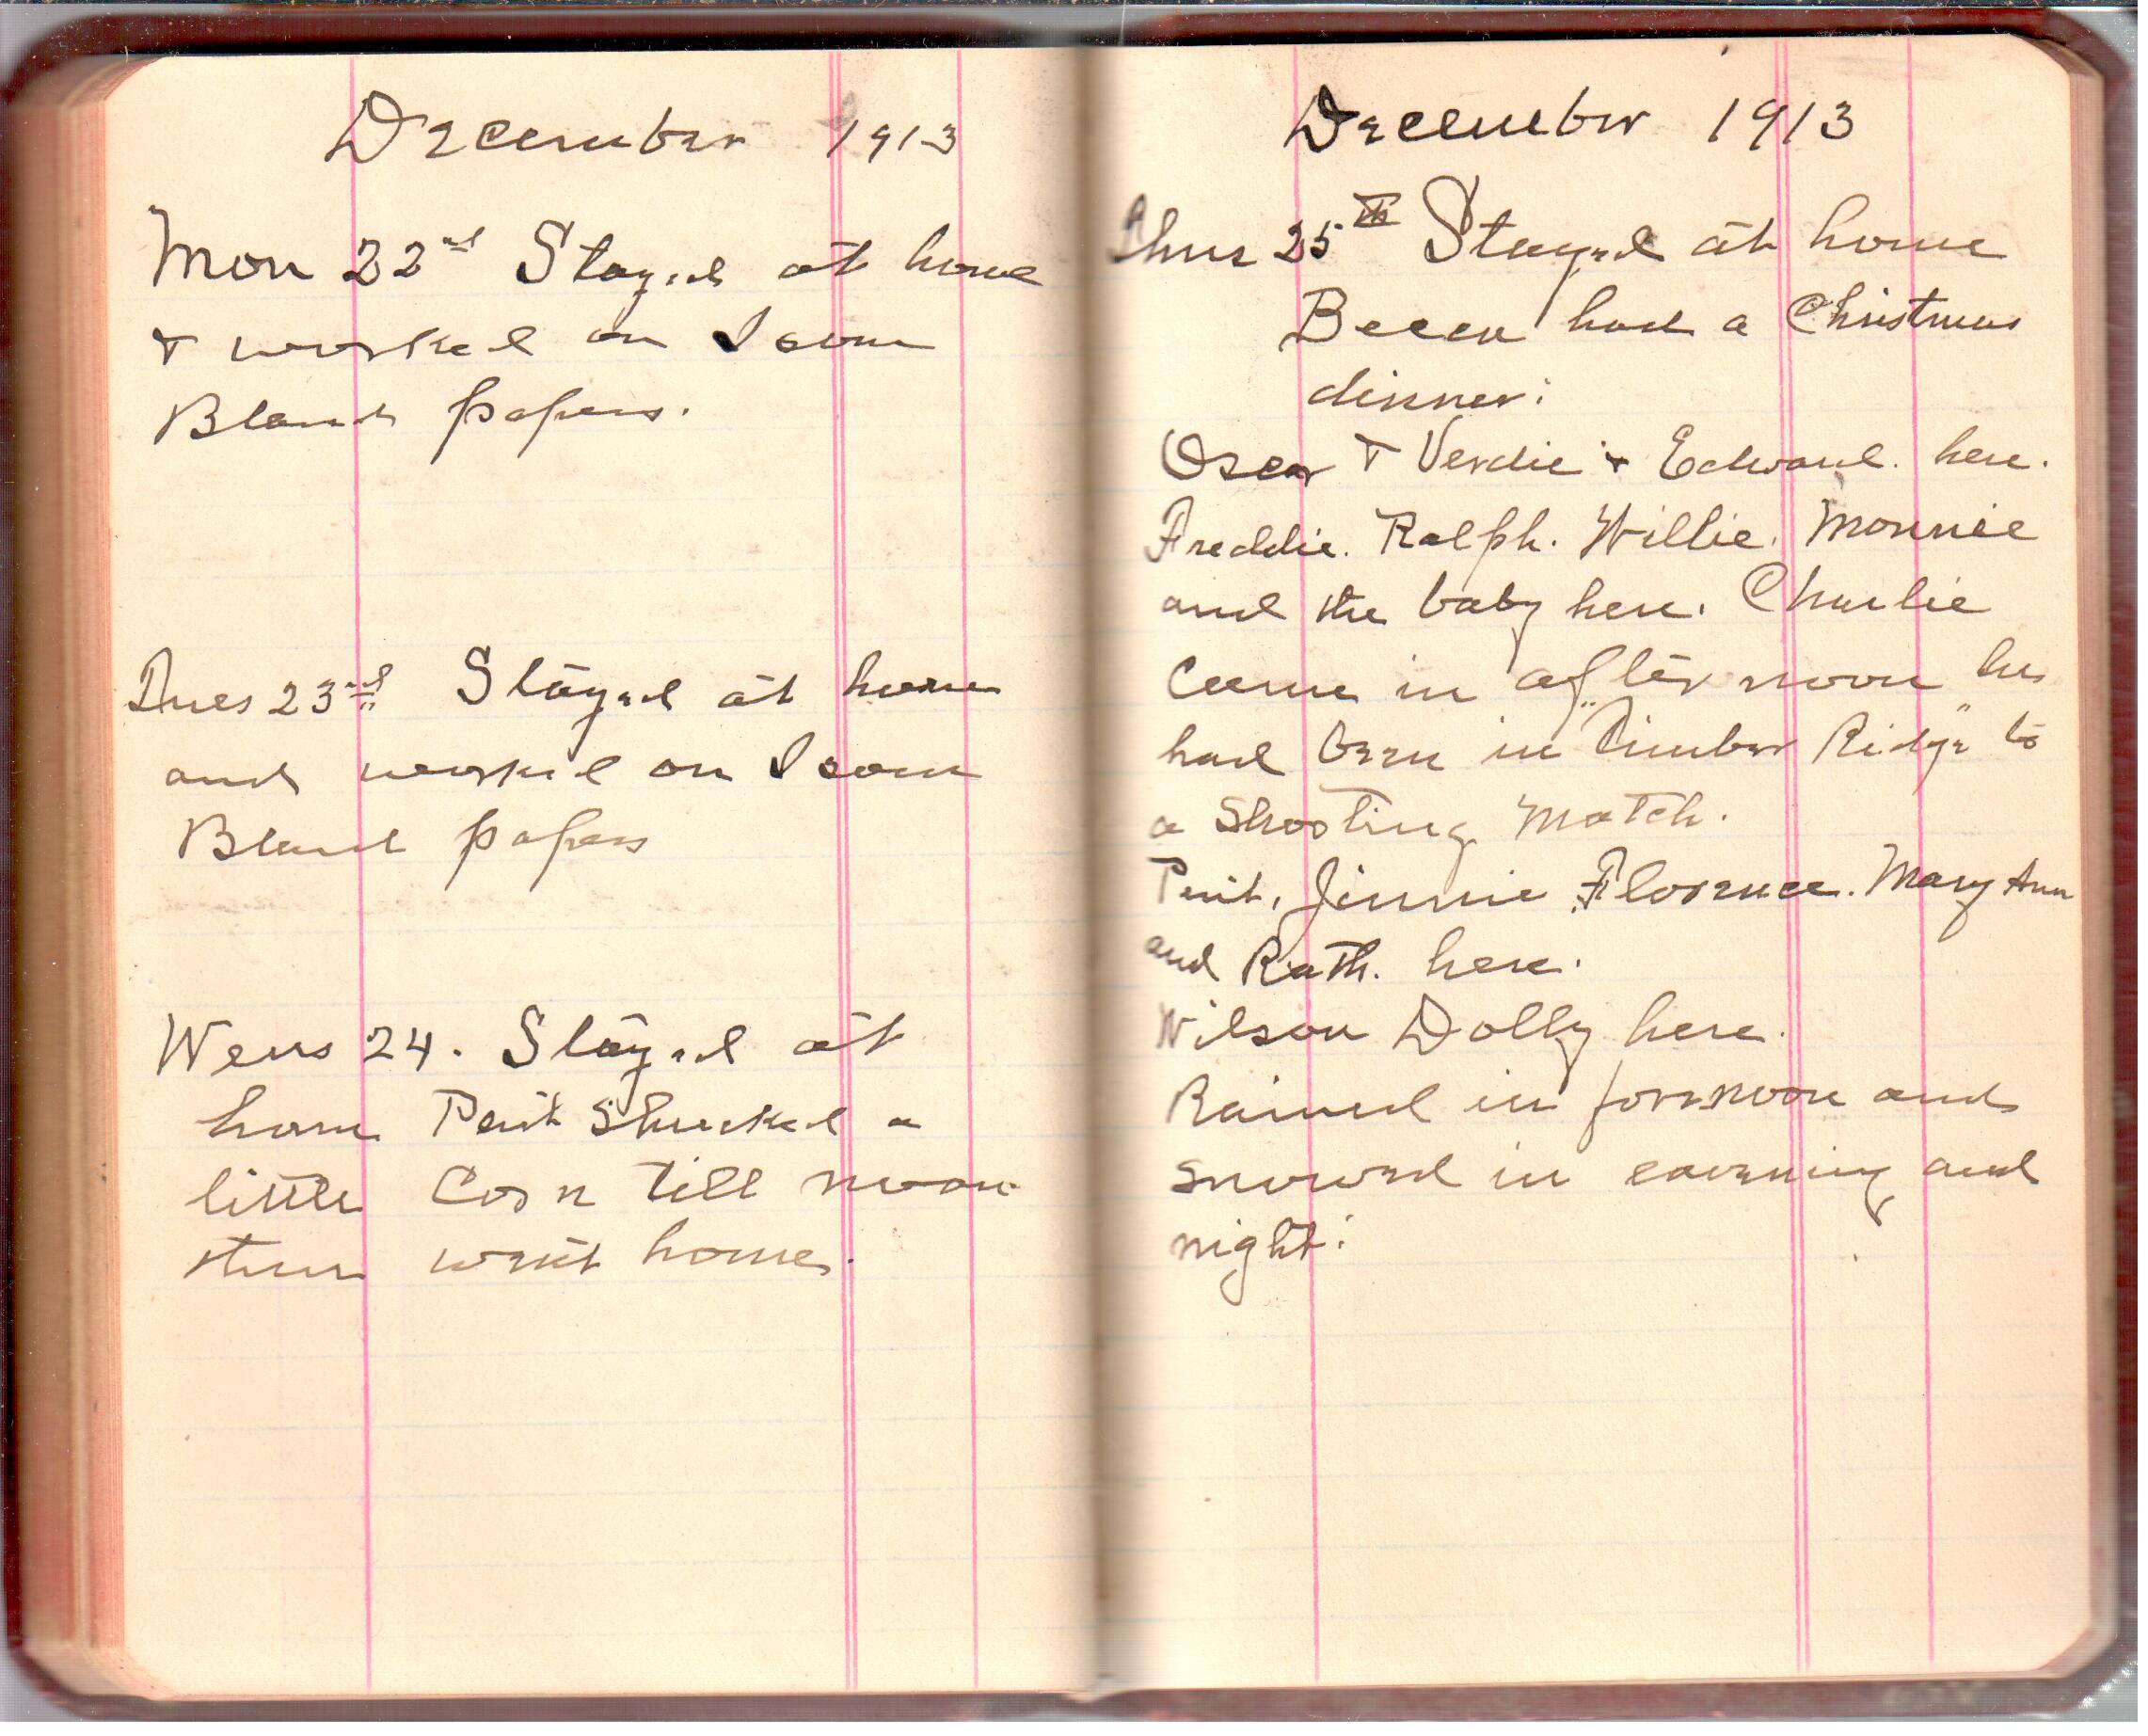 December 1913
Mon 22nd Stayed at home
& worked on Isom
Bland papers.
Tues 23rd Stayed at home
and worked on Isom
Bland papers
Wens 24. Stayed at
home Perit Shucked a
little Corn till noon
then went home.
December 1913
Thur 25th Stayed at home
Becca had a Christmas
dinner:
Oscar & Verdie & Edward. here.
Freddie. Ralph. Willie. Monnie
and the baby here. Charlie
Came in after noon he
had been in "Timber Ridge" to
a Shooting Match.
Perit, Jinnie Florence. Mary Ann
and Ruth. here.
Wilson Dolly here.
Rained in forenoon and
snowed in eavening and
night: